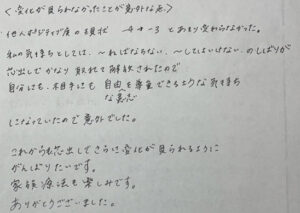 <変化が見られなかったことが意外な点>
他人ネガティブ度の現状 -4→-3 とあまり変わらなかった。
私の気持ちとしては、〜ねばならない、〜してはいけない のしばりが
芯出しでかなり取れて解放されたので
自分にも、相手にも 自由な意志を尊重できるような気持ち
になっていたので意外でした。
これからも芯出しでさらに変化が見られるように
がんばりたいです。
家族療法も楽しみです。
ありがとうございました。